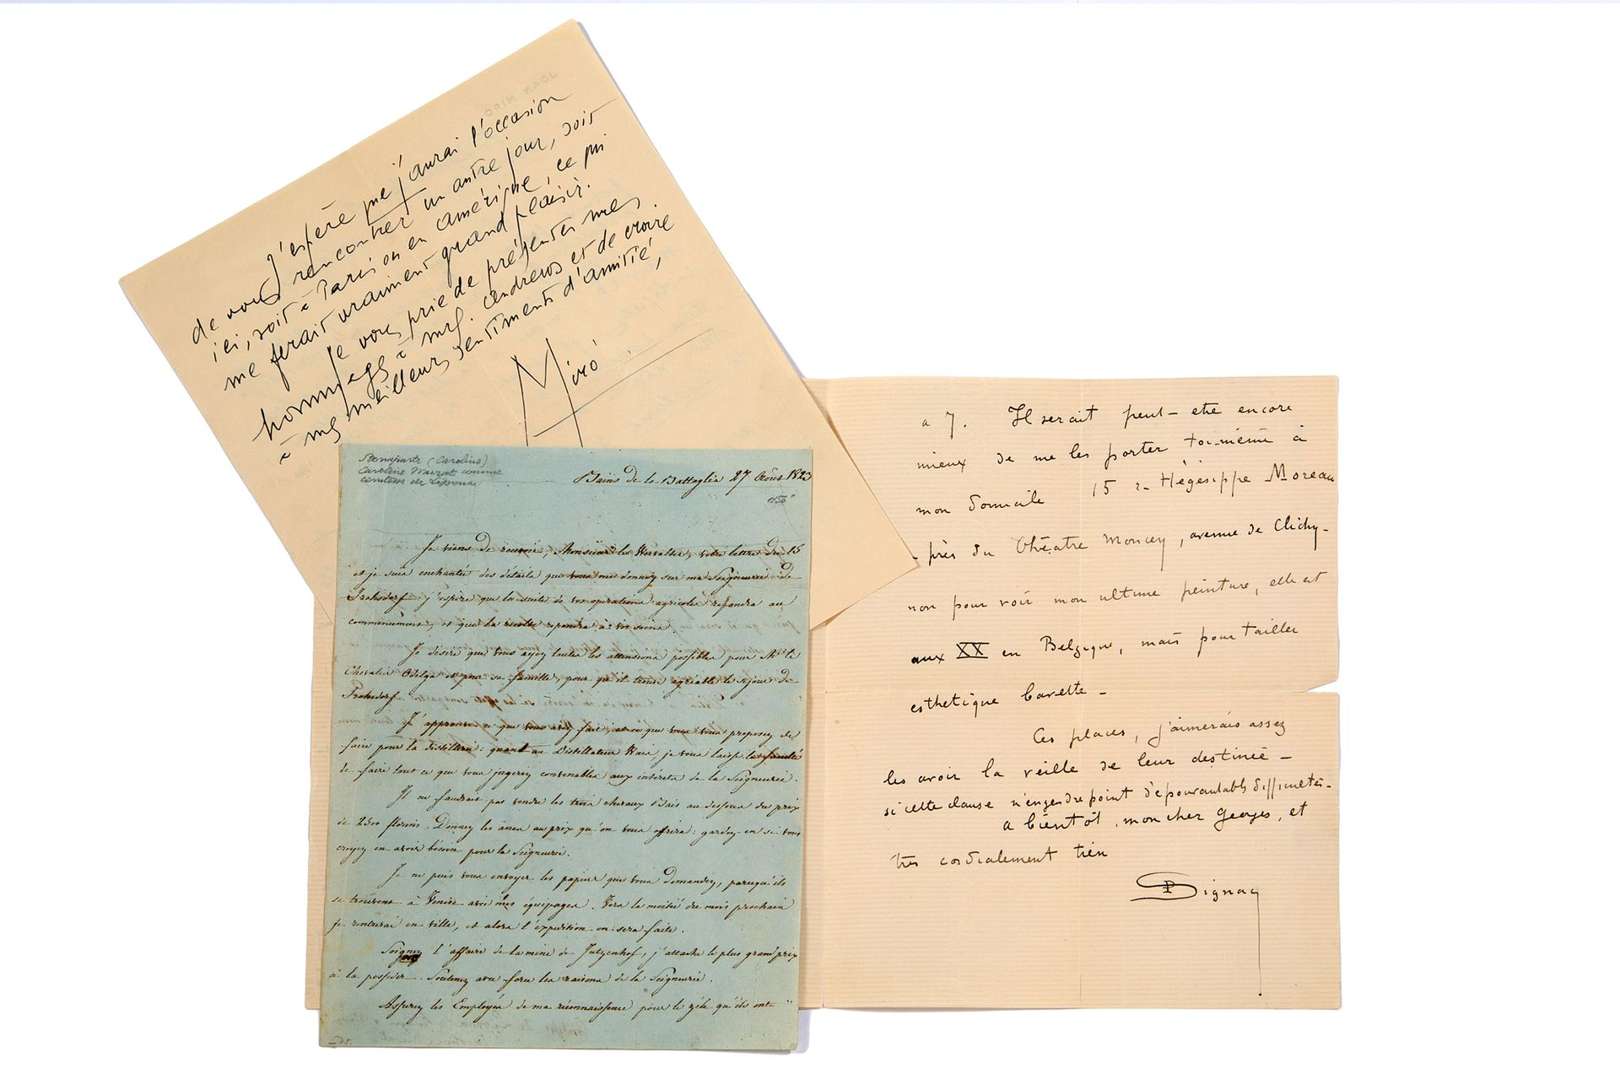 J'espère que j'aurai l'occasion
de vous rencontrer un autre jour, soit
ici, soit à Paris ou en amérique, ce qui
me ferait vraiment grand plaisir.
Je vous prie de présenter mes
hommages à
à mes meilleurs sentiments d'amitié,
Miró
JOAN MIRÓ
Bonaparte (Caroline)
Caroline Murat comme
comtesse de Lipona
Bains de la Battaglia 27 Août 1823
Je viens de recevoir, Monsieur le Chevalier, votre lettre du 15
et je suis enchantée des détails que vous me donnez sur ma Seigneurie de
Frohsdorf. j'espère que la suite de vos opérations agricoles répondra au
commencement, et que la récolte répondra à vos soins.
Je désire que vous ayez toutes les attentions possibles pour Mr. le
Chevalier Odelga et pour sa famille, pour qu'il trouve agréable le séjour de
Frohsdorf.
J'approuve ce que vous avez fait, et ce que vous vous proposez de
faire pour la distillerie: quant au Distillateur je vous laisse la faculté
de faire tout ce que vous jugerez convenable aux intérêts de la Seigneurie.
Il ne faudrait pas vendre les trois chevaux Bais au dessous du prix
de 2300 florins. Donnez les ânes au prix qu'on vous offrira: gardez-en si vous
croyez en avoir besoin pour la Seigneurie.
Je ne puis vous envoyer les papiers que vous demandez, parcequ'ils
se trouvent à Venise avec mes équipages. Vers la moitié du mois prochain
je rentrerai en ville, et alors l'expédition en sera faite.
Soignez l'affaire de la mine de j'attache le plus grand prix
à la posséder. Soutenez avec force les raisons de la Seigneurie.
Assurez les Employés de ma reconnaissance pour le zèle qu'ils ont
a 7. Il serait peut-etre encore
mieux de me les porter toi-même à
mon domicile 15 r. Hégésippe Moreau
- près du théatre Moncey, avenue de Clichy -
non pour voir mon ultime peinture, elle est
aux XX en Belgique, mais pour tailler
esthetique bavette -
Ces places, j'aimerais assez
les avoir la veille de leur destinée -
si cette clause n'engendre point d'épouvantables difficultés -
a bientôt, mon cher Georges, et
très cordialement tien
P Signac